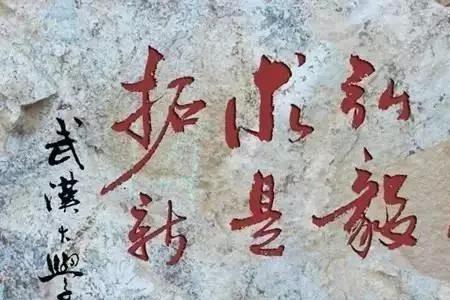 弘毅
求是
拓新
武漢大學